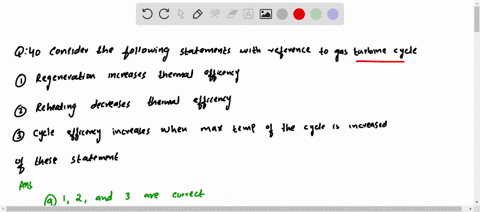 Q:40 Consider the following statements with reference to gas turbine cycle
① Regeneration increases thermal efficency
② Reheating decreases thermal efficency
③ Cycle efficency increases when max temp of the cycle is increased
of these statement
Ans
ⓐ 1, 2, and 3 are correct